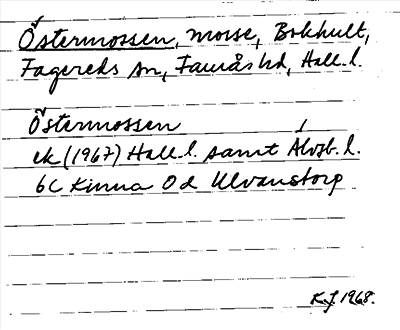 Östermossen, mosse, Bokhult,
Fagereds sn, Faurås hd, Hall. l.
Östermossen
ek (1967) Hall l. samt Älvsb. l.
6C Kinna 0d Ulvanstorp
K.J 1968.